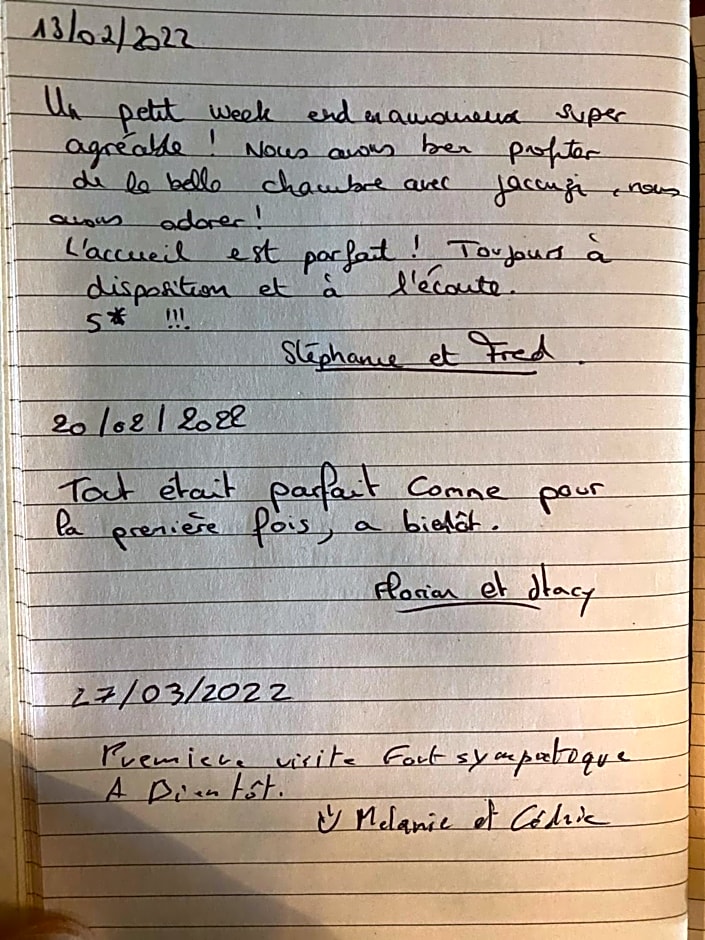 13/02/2022
Un petit week end en amoureux super
agréable ! Nous avons bien profiter
de la belle chambre avec jaccuzi, nous
avons adorer !
L'accueil est parfait ! Toujours à
disposition et à l'écoute.
5* !!!
Stéphanie et Fred.
20/02/2022
Tout était parfait comme pour
la première fois, a bientôt.
Florian et Stacy
27/03/2022
Premiere visite Fort sympatoque
A Bientôt.
Melanie et Cédric